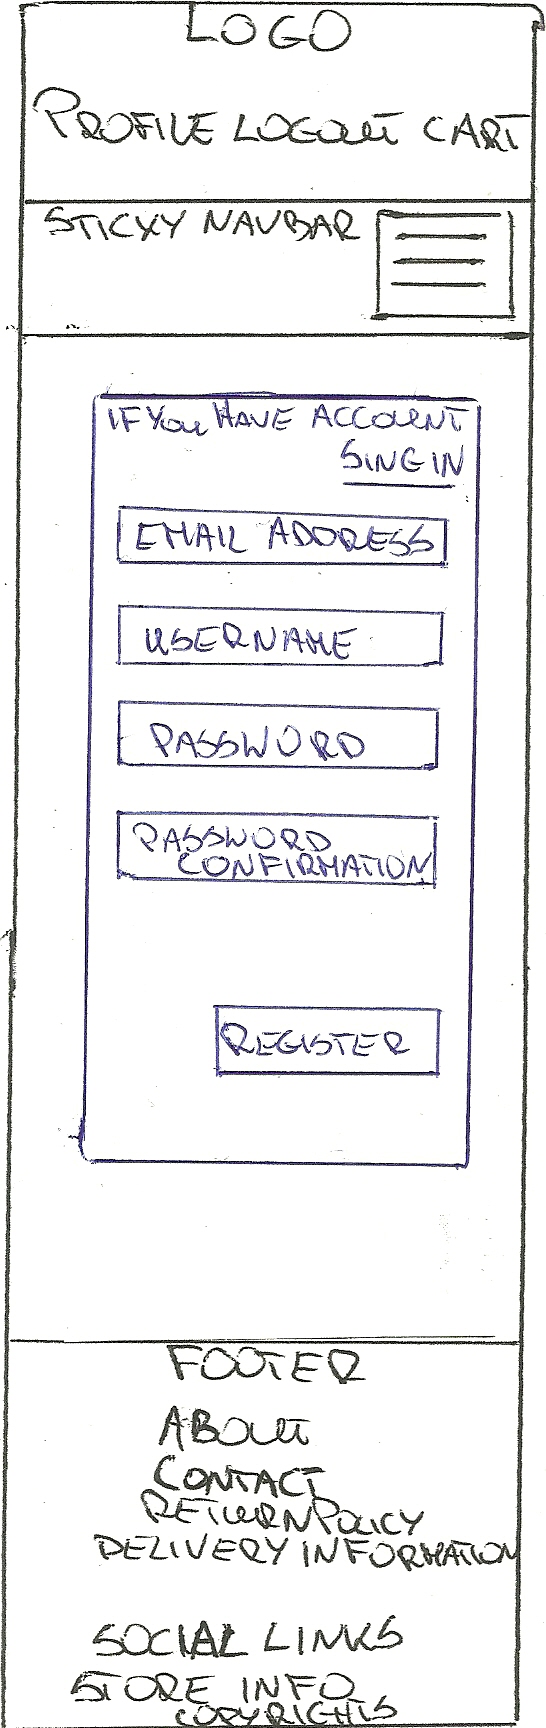 LOGO
PROFILE LOGOUT CART
STICKY NAVBAR
IF YOU HAVE ACCOUNT
SING IN
EMAIL ADDRESS
USERNAME
PASSWORD
PASSWORD
CONFIRMATION
REGISTER
FOOTER
ABOUT
CONTACT
RETURN POLICY
DELIVERY INFORMATION
SOCIAL LINKS
STORE INFO
COPYRIGHTS